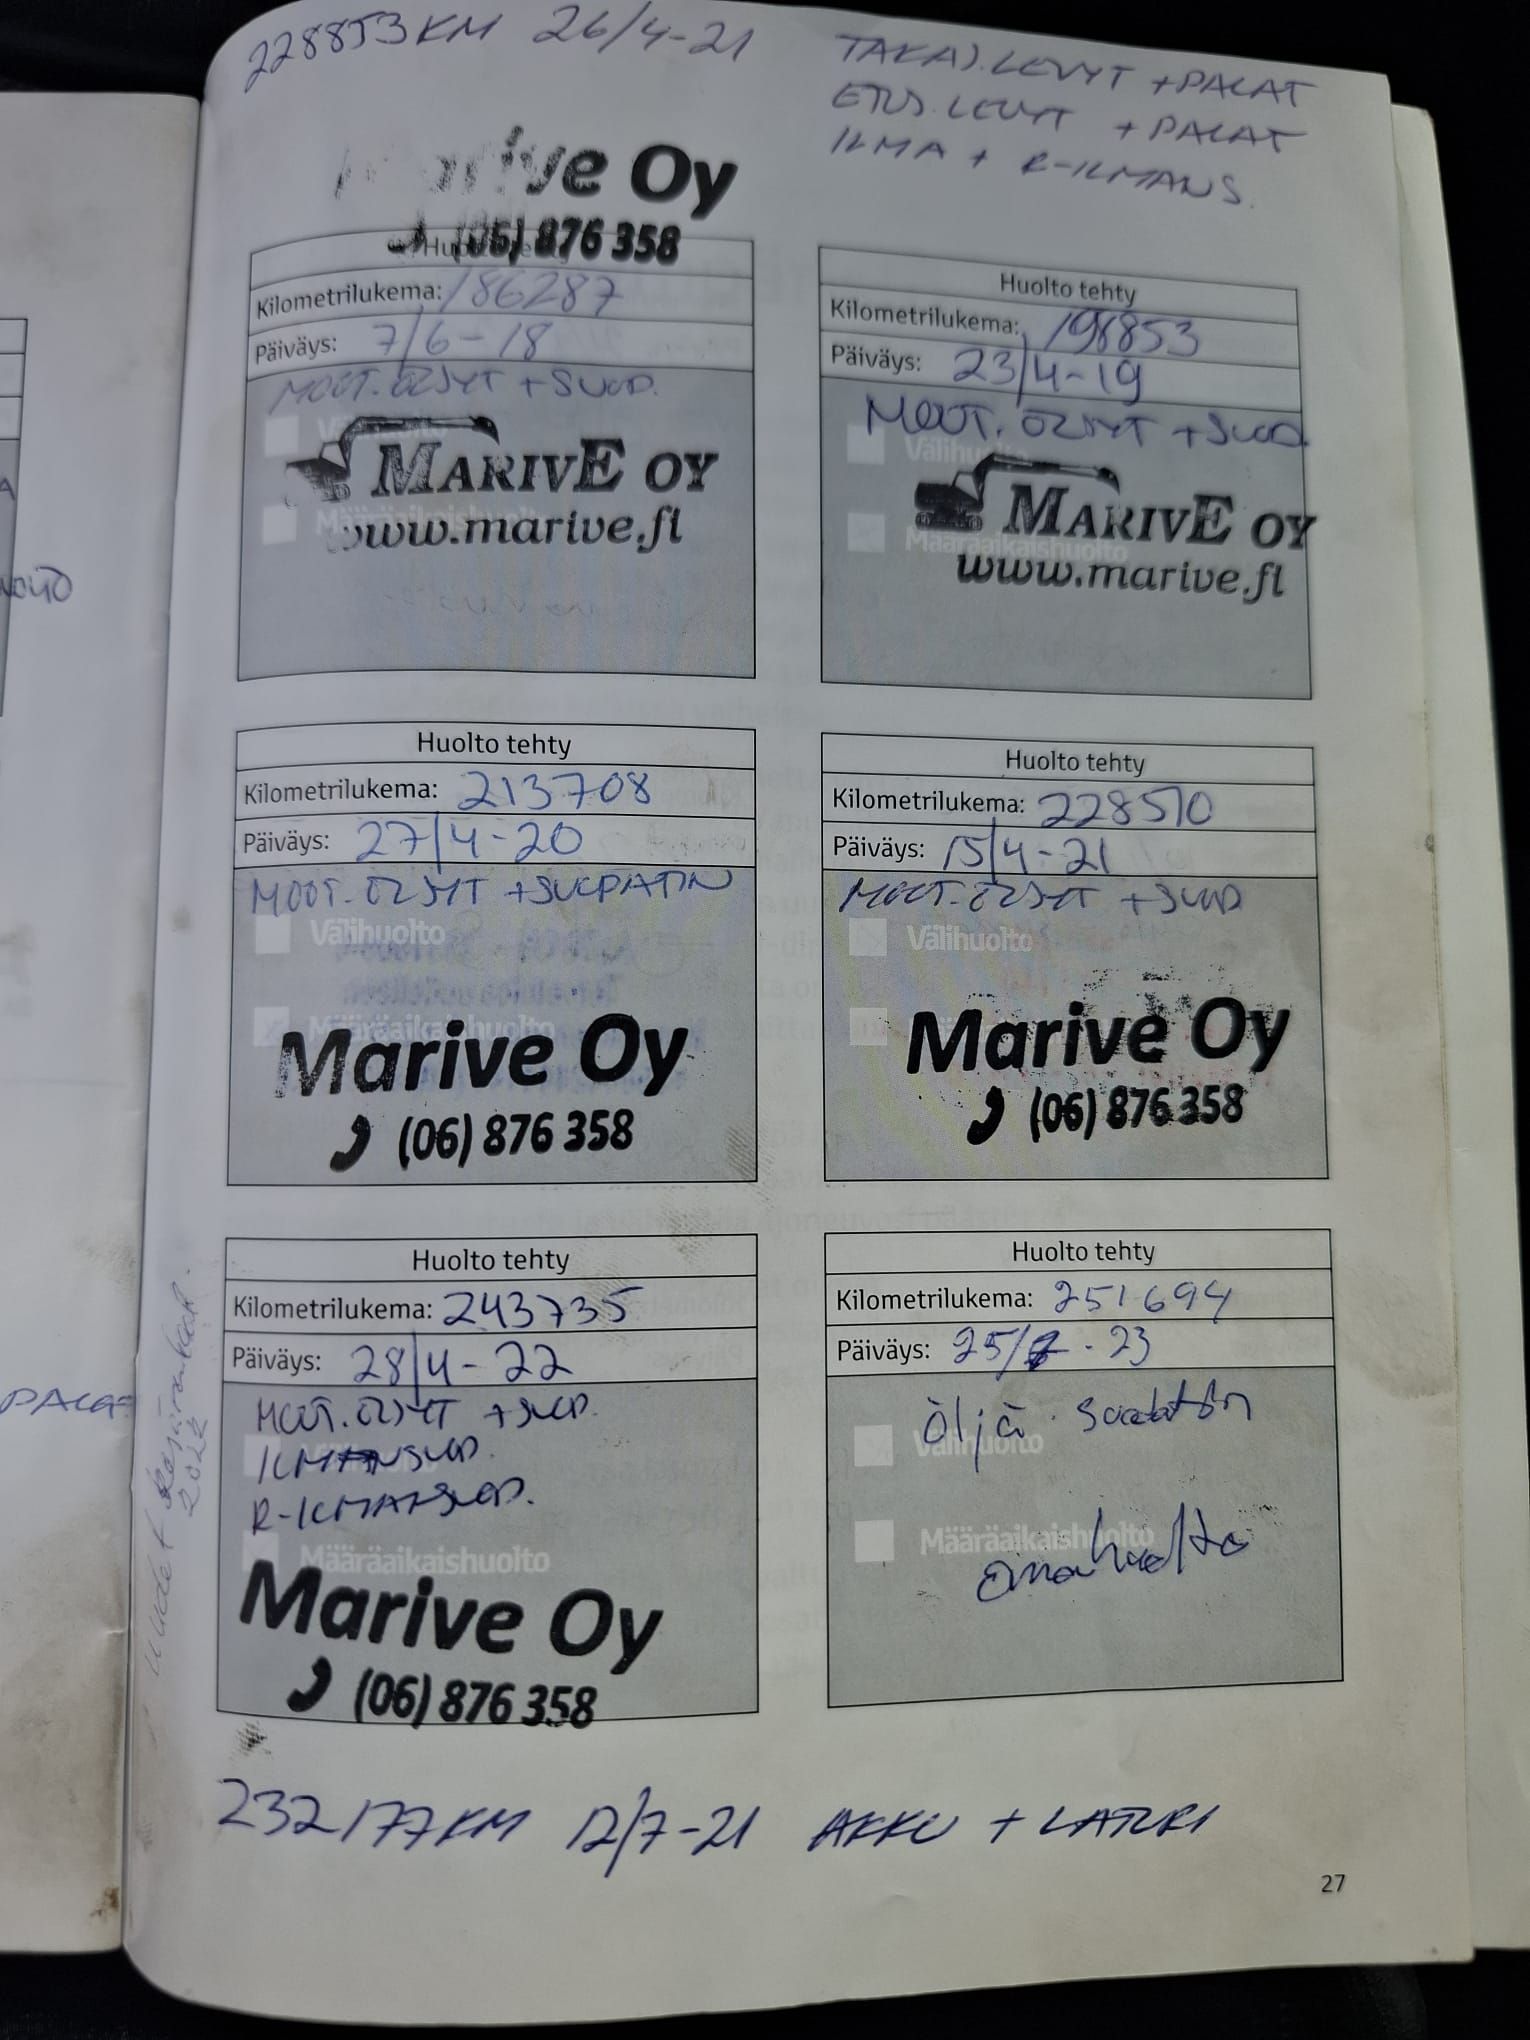 228853 KM 26/4-21
TAKAJ. LEVYT + PALAT
ETUJ. LEVYT + PALAT
ILMA + R-ILMANS.
Marive Oy
(06) 876 358
Kilometrilukema: 186287
Päiväys: 7/6-18
MOOT. ÖLJYT + SUOD.
Välihuolto
MARIVE OY
Määräaikaishuolto
www.marive.fi
Huolto tehty
Kilometrilukema: 198853
Päiväys: 23/4-19
MOOT. ÖLJYT + SUOD
Välihuolto
MARIVE OY
Määräaikaishuolto
www.marive.fi
Huolto tehty
Kilometrilukema: 213708
Päiväys: 27/4-20
MOOT. ÖLJYT + SUODATIN
Välihuolto
Määräaikaishuolto
Marive Oy
(06) 876 358
Huolto tehty
Kilometrilukema: 228510
Päiväys: 15/4-21
MOOT. ÖLJYT + SUOD
Välihuolto
Marive Oy
(06) 876 358
Huolto tehty
Kilometrilukema: 243735
Päiväys: 28/4-22
MOOT. ÖLJYT + SUOD.
ILMANSUOD.
R-ILMANSUOD.
Määräaikaishuolto
Marive Oy
(06) 876 358
Huolto tehty
Kilometrilukema: 251694
Päiväys: 25/7.23
Öljä suodatin
Välihuolto
Määräaikaishuolto
omahuolto
uudet kesärenkaat.
2022
232177 KM 12/7-21 AKKU + LATURI
27
PALAT